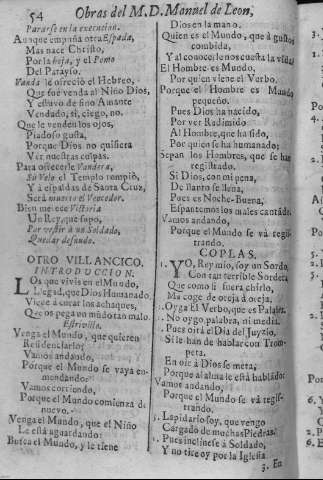 54
Obras del M. D. Manuel de Leon,
Pararse en la execucion.
Aunque empuña otra Espada,
Mas nace Christo,
Por la hoja, y el Pomo
Del Parayso.
Vanda le ofreciò el Hebreo,
Que fuè venda al Niño Dios,
Y estuvo de fino Amante
Vendado, si, ciego, no.
Que le venden los ojos,
Piadoso gusta,
Porque Dios no quisiera
Ver nuestras culpas.
Para ofrecerle Vandera,
Su Velo el Templo rompiò,
Y à espaldas de Santa Cruz,
Serà muerto el Vencedor.
Bien merece Victoria
Un Rey, que supo,
Por vestir à un Soldado,
Quedar desnudo.
OTRO VILLANCICO.
INTRODUCCION.
LOs que vivis en el Mundo,
Llegad, que Dios Humanado
Viene à curar los achaques,
Que os pega un mũdo tan malo.
Estrivillo.
Venga el Mundo, que quieren
Residenciarlo;
Vamos andando,
Porque el Mundo se vaya en-
mendando:
Vamos corriendo,
Porque el Mundo comience de
nuevo.
Venga el Mundo, que el Niño
Le està aguardando:
Busca el Mundo, y le tiene
Dios en la mano.
Quien es el Mundo, que à gustos
combida,
Y al conocerle nos cuesta la vida?
El Hombre es Mundo,
Por quien viene el Verbo.
Porque el Hombre es Mundo
pequeño.
Pues Dios ha nacido,
Por ver Redimido
Al Hombre, que ha sido,
Por quien se ha humanado:
Sepan los Hombres, que se han
registrado.
Si Dios, con mi pena,
De llanto se llena,
Pues es Noche-Buena,
Espantemos los males cantãdo.
Vamos andando,
Porque el Mundo se và regis-
trando.
COPLAS.
1. YO, Rey mio, soy un Sordo,
Con tan terrible Sordera,
Que como si fuera chirlo,
Me coge de oreja à oreja.
2. Oyga El Verbo, que es Palabra.
1. No oygo palabra, ni media.
2. Pues orà el Dia del Juyzio,
Si le han de hablar con Trom-
peta.
En oir à Dios se meta,
Porque al alma le està hablãdo:
Vamos andando,
Porque el Mundo se và regis-
trando.
3. Lapidario soy, que vengo
Cargado de muchas Piedras.
2. Pues inclinese à Soldado,
Y no tire oy por la Iglesia
3. En